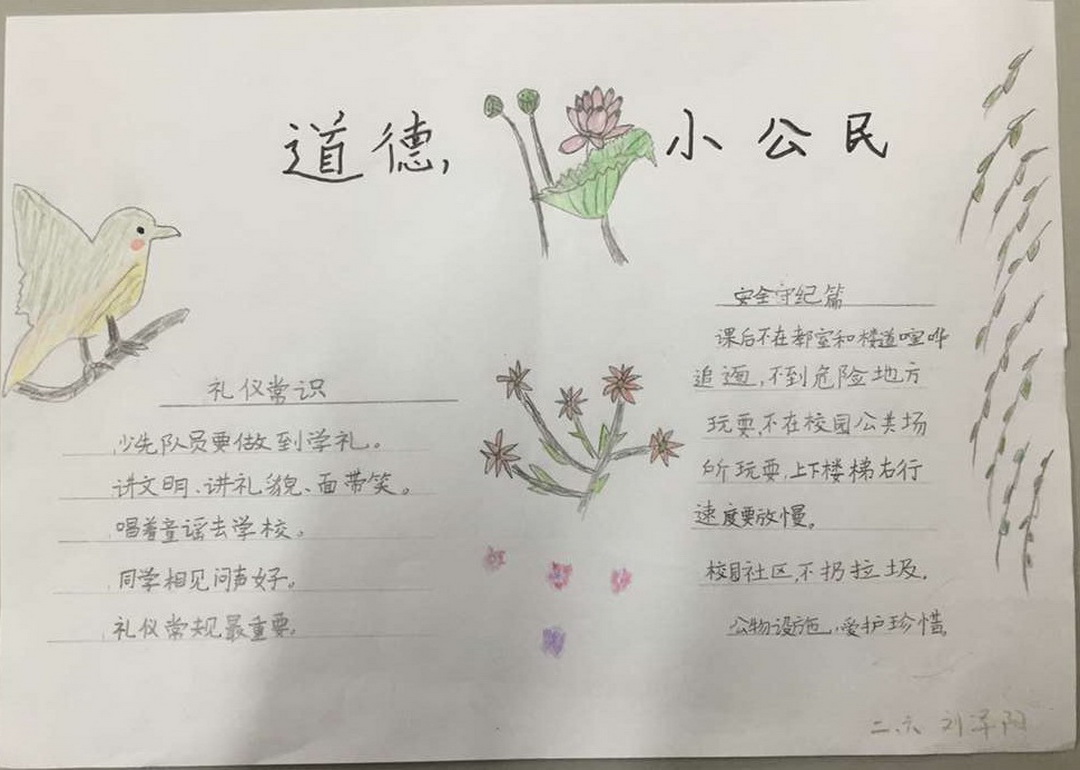 道德,小公民
礼仪常识
少先队员要做到学礼。
讲文明、讲礼貌、面带笑。
唱着童谣去学校。
同学相见问声好。
礼仪常规最重要。
安全守纪篇
课后不在教室和楼道喧哗
追逦,不到危险地方
玩耍,不在校园公共场
所玩耍,上下楼梯右行
速度要放慢。
校园社区,不扔垃圾.
公物设施,爱护珍惜.
二、六 刘泽阳